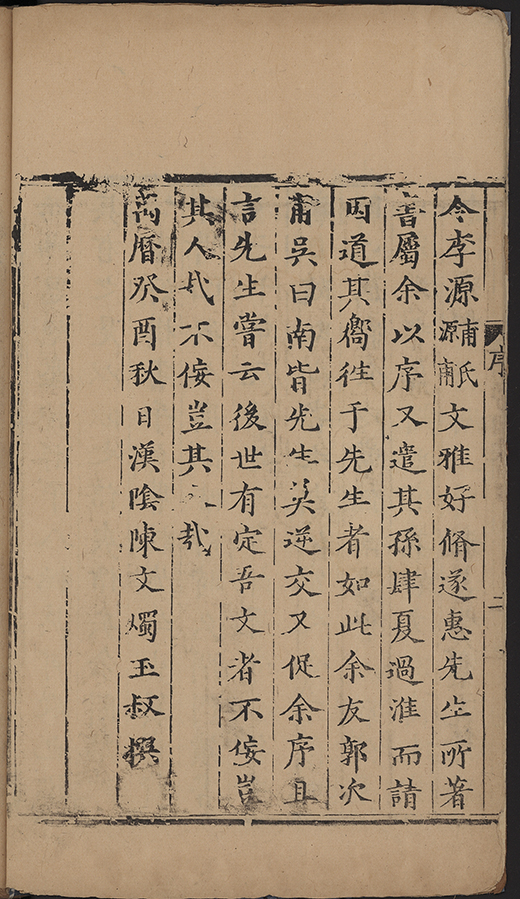 序
二
令李源甫氏源甫文雅好脩遂惠先生所著
書屬余以序又遣其孫肆夏過淮而請
因道其嚮往于先生者如此余友郭次
甫吳曰南皆先生莫逆交又促余序且
言先生嘗云後世有定吾文者不佞豈
其人哉不佞豈其人哉
萬曆癸酉秋日漢陰陳文燭玉叔撰